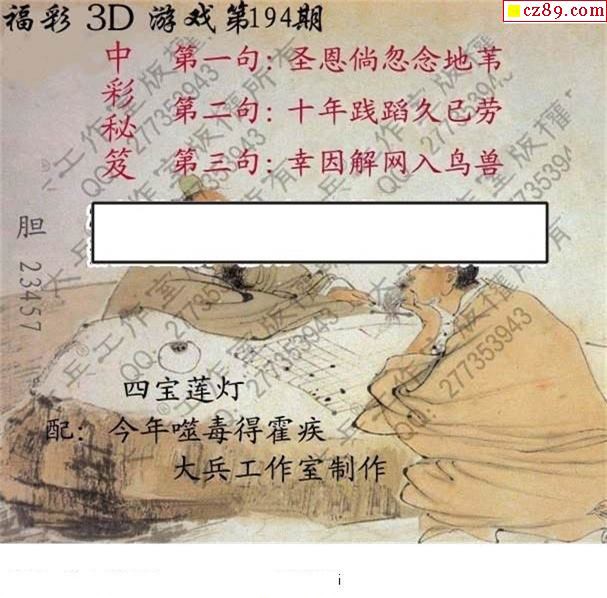 福彩 3D 游戏第194期
cz89.com
中彩秘笈
第一句：圣恩倘忽念地苇
第二句：十年践蹈久已劳
第三句：幸因解网入鸟兽
胆 23457
四宝莲灯
配：今年噬毒得霍疾
大兵工作室制作
大兵工作室版权所有
QQ：277353943
i